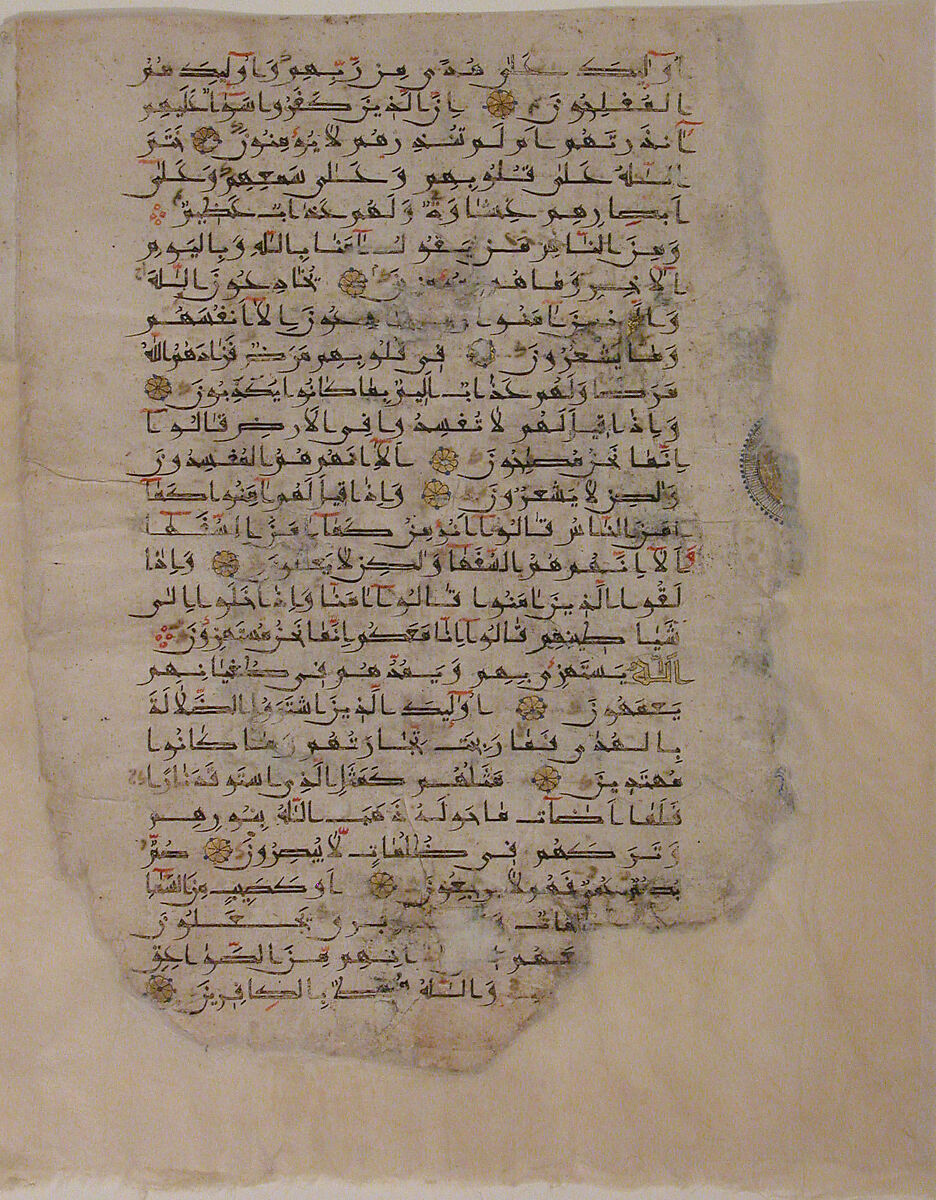 أولئك على هدى من ربهم وأولئك هم
المفلحون إن الذين كفروا سواء عليهم
أأنذرتهم أم لم تنذرهم لا يؤمنون ختم
الله على قلوبهم وعلى سمعهم وعلى
أبصارهم غشاوة ولهم عذاب عظيم
ومن الناس من يقول آمنا بالله وباليوم
الآخر وما هم يخادعون الله
والذين آمنوا وما يخادعون إلا أنفسهم
وما يشعرون في قلوبهم مرض فزادهم الله
مرضا ولهم عذاب أليم بما كانوا يكذبون
وإذا قيل لهم لا تفسدوا في الأرض قالوا
إنما نحن مصلحون ألا إنهم هم المفسدون
ولكن لا يشعرون وإذا قيل لهم آمنوا كما
آمن الناس قالوا أنؤمن كما آمن السفها
ألا إنهم هم السفها ولكن لا يعلمون وإذا
لقوا الذين آمنوا قالوا آمنا وإذا خلوا إلى
شياطينهم قالوا إنا معكم إنما نحن مستهزون
الله يستهزئ بهم ويمدهم في طغيانهم
يعمهون أولئك الذين اشتروا الضلالة
بالهدى فما ربحت تجارتهم وما كانوا
مهتدين مثلهم كمثل الذي استوقد نارا
فلما أضات ما حوله ذهب الله بنورهم
وتركهم في ظلمات لا يبصرون صم
بكم عمي فهم لا يرجعون أو كصيب من السما
ظلمات وبرق يجعلون
آذانهم من الصواعق
والله محيط بالكافرين